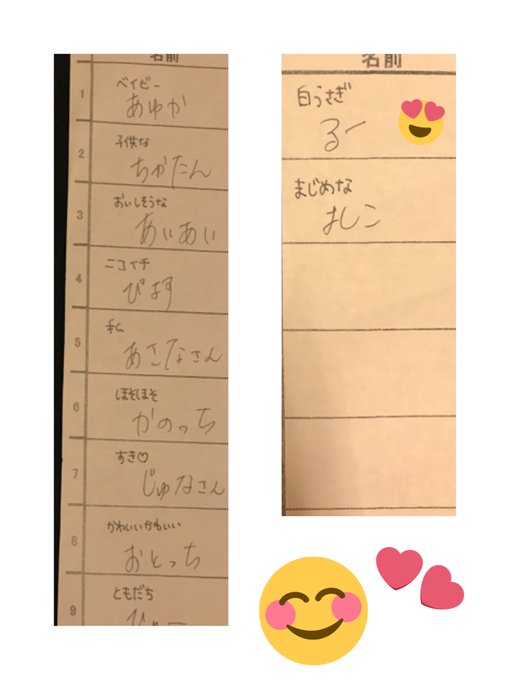 名前
1
ベイビー
あゆか
2
子供な
ちかたん
3
おいしそうな
あいあい
4
ニコイチ
ぴます
5
私
あさなさん
6
ほそほそ
かのっち
7
すき♡
じゅなさん
8
かわいいかわいい
おとっち
9
ともだち
名前
白うさぎ
るー
まじめな
よしこ